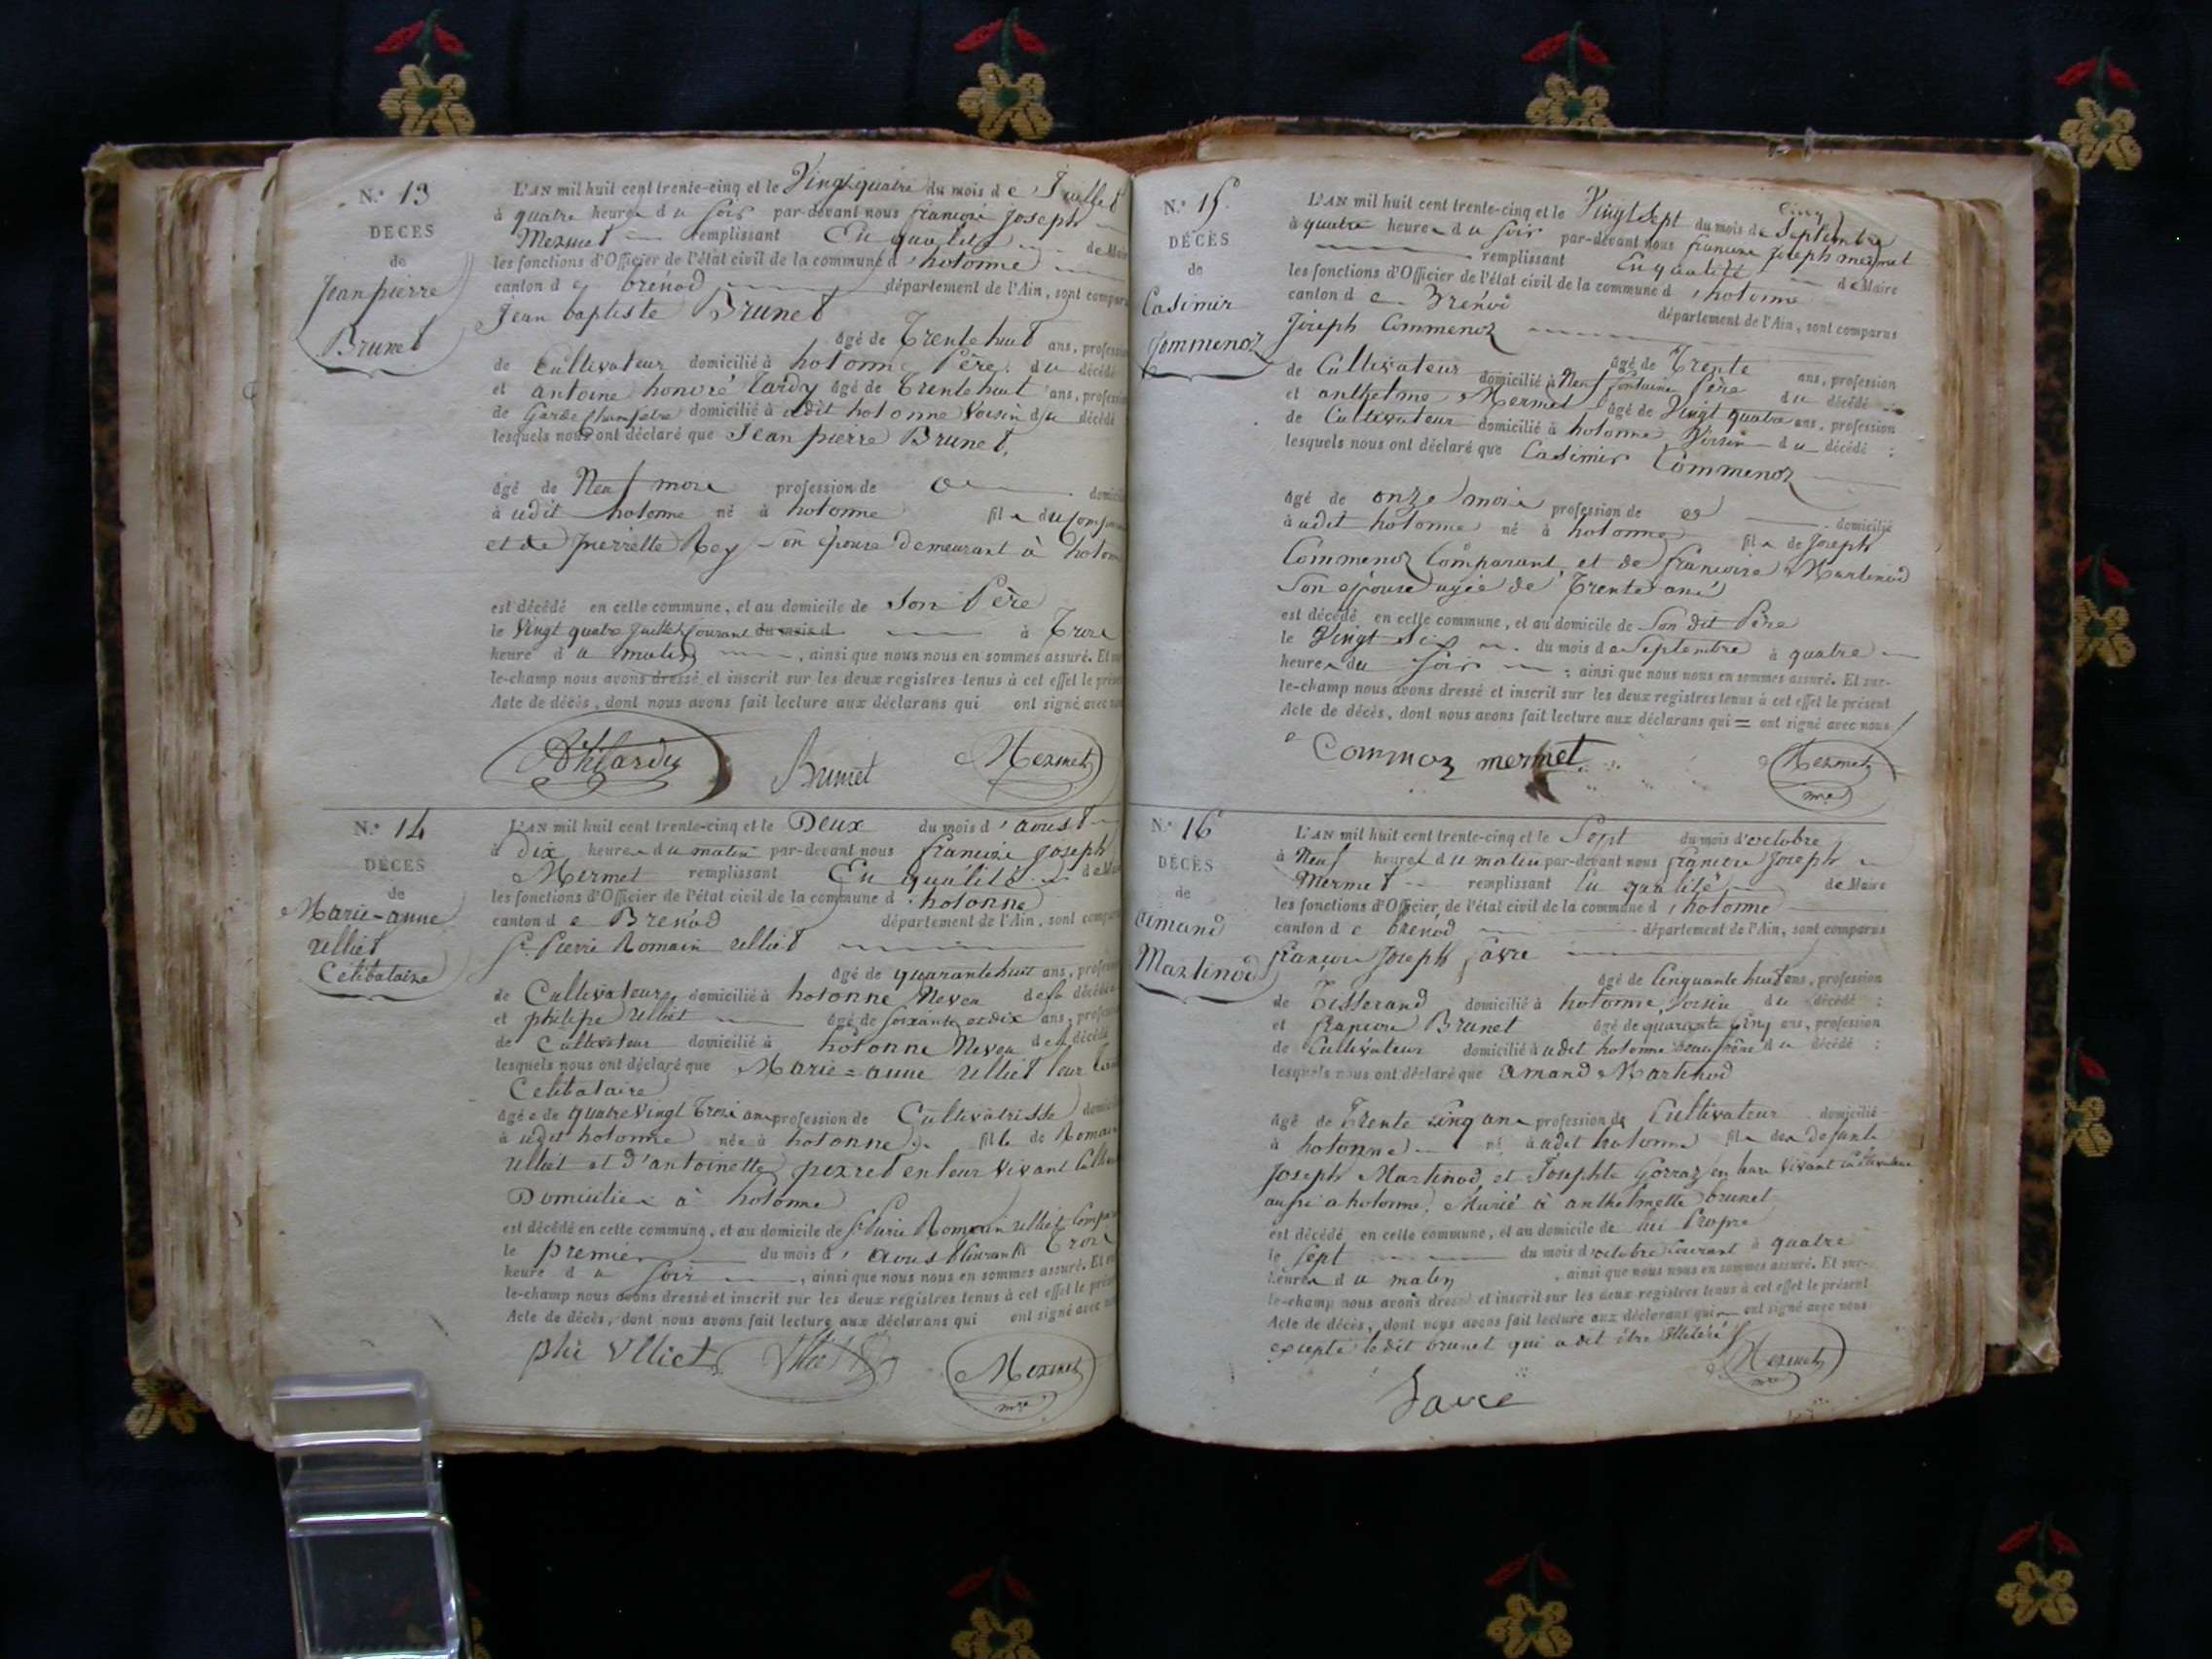 N.° 13
DÉCÈS
de
Jean pierre
Brunet
L'AN mil huit cent trente-cinq et le Vingt quatre du mois de Juillet
à quatre heures du soir par-devant nous françois Joseph
Mermet remplissant En qualité de Maire
les fonctions d'Officier de l'état civil de la commune d'hotonne
canton de brénod département de l'Ain, sont
Jean baptiste Brunet
âgé de Trente huit ans,
de Cultivateur domicilié à hotonne Père du décédé
et antoine honoré tardy âgé de trente huit ans,
de Garde Champetre domicilié à udit hotonne Voisin du décédé
lesquels nous ont déclaré que Jean pierre Brunet,
âgé de Neuf mois profession de
à udit hotonne né à hotonne fils du
et de pierrette Rey son épouse demeurant à
est décédé en cette commune, et au domicile de Son Père
le Vingt quatre Juillet Courant du mois d à Troix
heure du matin, ainsi que nous nous en sommes assuré. Et
le-champ nous avons dressé et inscrit sur les deux registres tenus à cet effet le
Acte de décès, dont nous avons fait lecture aux déclarans qui ont signé avec
Brunet Mermet
N.° 14
DÉCÈS
de
Marie-anne
ulliet
Célibataire
L'AN mil huit cent trente-cinq et le Deux du mois d'aoust
à dix heures du matin par-devant nous françois Joseph
Mermet remplissant En qualité de
les fonctions d'Officier de l'état civil de la commune d'hotonne
canton de Brénod département de l'Ain, sont
Pierre Romain ulliet
âgé de quarante huit ans,
de Cultivateur domicilié à hotonne Neveu de la décédée
et philipe Ulliet âgé de soixante et dix ans,
de Cultivateur domicilié à hotonne Neveu de la décédé
lesquels nous ont déclaré que Marie=anne Ulliet leur
Celibataire
âgée de quatre Vingt Troix ans profession de Cultivatrisse
à udit hotonne née à hotonne fille de
Ulliet et d'antoinette perret en leur Vivant
Domiciliés à hotonne
est décédé en cette commune, et au domicile de Pierre Romain Ulliet
le premier du mois d'aoust Courant à Troix
heure du soir, ainsi que nous nous en sommes assuré. Et
le-champ nous avons dressé et inscrit sur les deux registres tenus à cet effet le
Acte de décès, dont nous avons fait lecture aux déclarans qui ont signé avec
phi Ulliet Ulliet Mermet
mre
N.° 15
DÉCÈS
de
Casimir
Commenoz
cinq
L'AN mil huit cent trente-cinq et le Vingt Sept du mois de Septembre
à quatre heures du soir par-devant nous françois Joseph mermet
remplissant En qualité de Maire
les fonctions d'Officier de l'état civil de la commune d'hotonne
canton de Brénod département de l'Ain, sont comparus
Joseph Commenoz
âgé de Trente ans, profession
de Cultivateur domicilié à Neuf fontaine Père du décédé
et anthelme Mermet âgé de Vingt quatre ans, profession
de Cultivateur domicilié à hotonne Voisin du décédé ;
lesquels nous ont déclaré que Casimir Commenoz
âgé de onze mois profession de domicilié
à udit hotonne né à hotonne fils de Joseph
Commenoz Comparant, et de françoise Martinod
Son épouse agée de Trente ans
est décédé en cette commune, et au domicile de Son dit Père
le Vingt Six du mois de Septembre à quatre
heures du soir ; ainsi que nous nous en sommes assuré. Et sur-
le-champ nous avons dressé et inscrit sur les deux registres tenus à cet effet le présent
Acte de décès, dont nous avons fait lecture aux déclarans qui = ont signé avec nous
mermet Mermet
mre
N.° 16
DÉCÈS
de
amand
Martinod
L'AN mil huit cent trente-cinq et le Sept du mois d'octobre
à Neuf heures du matin par-devant nous françois Joseph
Mermet remplissant En qualité de Maire
les fonctions d'Officier de l'état civil de la commune d'hotonne
canton de brénod département de l'Ain, sont comparus
françois Joseph favre
âgé de Cinquante huit ans, profession
de Tisserand domicilié à hotonne, voisin du décédé ;
et françois Brunet âgé de quarante Cinq ans, profession
de Cultivateur domicilié à udit hotonne beaufrère du décédé :
lesquels nous ont déclaré que amand Martinod
âgé de Trente Cinq ans profession de Cultivateur domicilié
à hotonne né à udit hotonne fils des defunts
Joseph Martinod, et Josephte Gorraz en leurs Vivant Cultivateurs
aussi a hotonne, Marié à anthelmette brunet
est décédé en cette commune, et au domicile de lui Propre
le Sept du mois d'octobre Courant à quatre
heures du matin, ainsi que nous nous en sommes assuré. Et sur-
le-champ nous avons dressé et inscrit sur les deux registres tenus à cet effet le présent
Acte de décès, dont nous avons fait lecture aux déclarans qui ont signé avec nous
excepté ledit brunet qui a dit être illétéré
Mermet
mre
favre